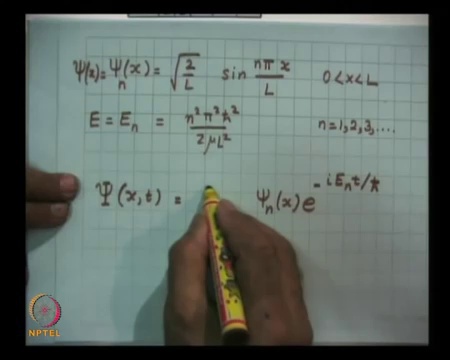 ψ(x) = ψₙ(x) = √(2/L) sin nπx/L 0 < x < L
E = Eₙ = n²π²ħ²/2μL² n = 1, 2, 3, ....
Ψ(x, t) = ψₙ(x) e^(-iEₙt/ħ)
NPTEL